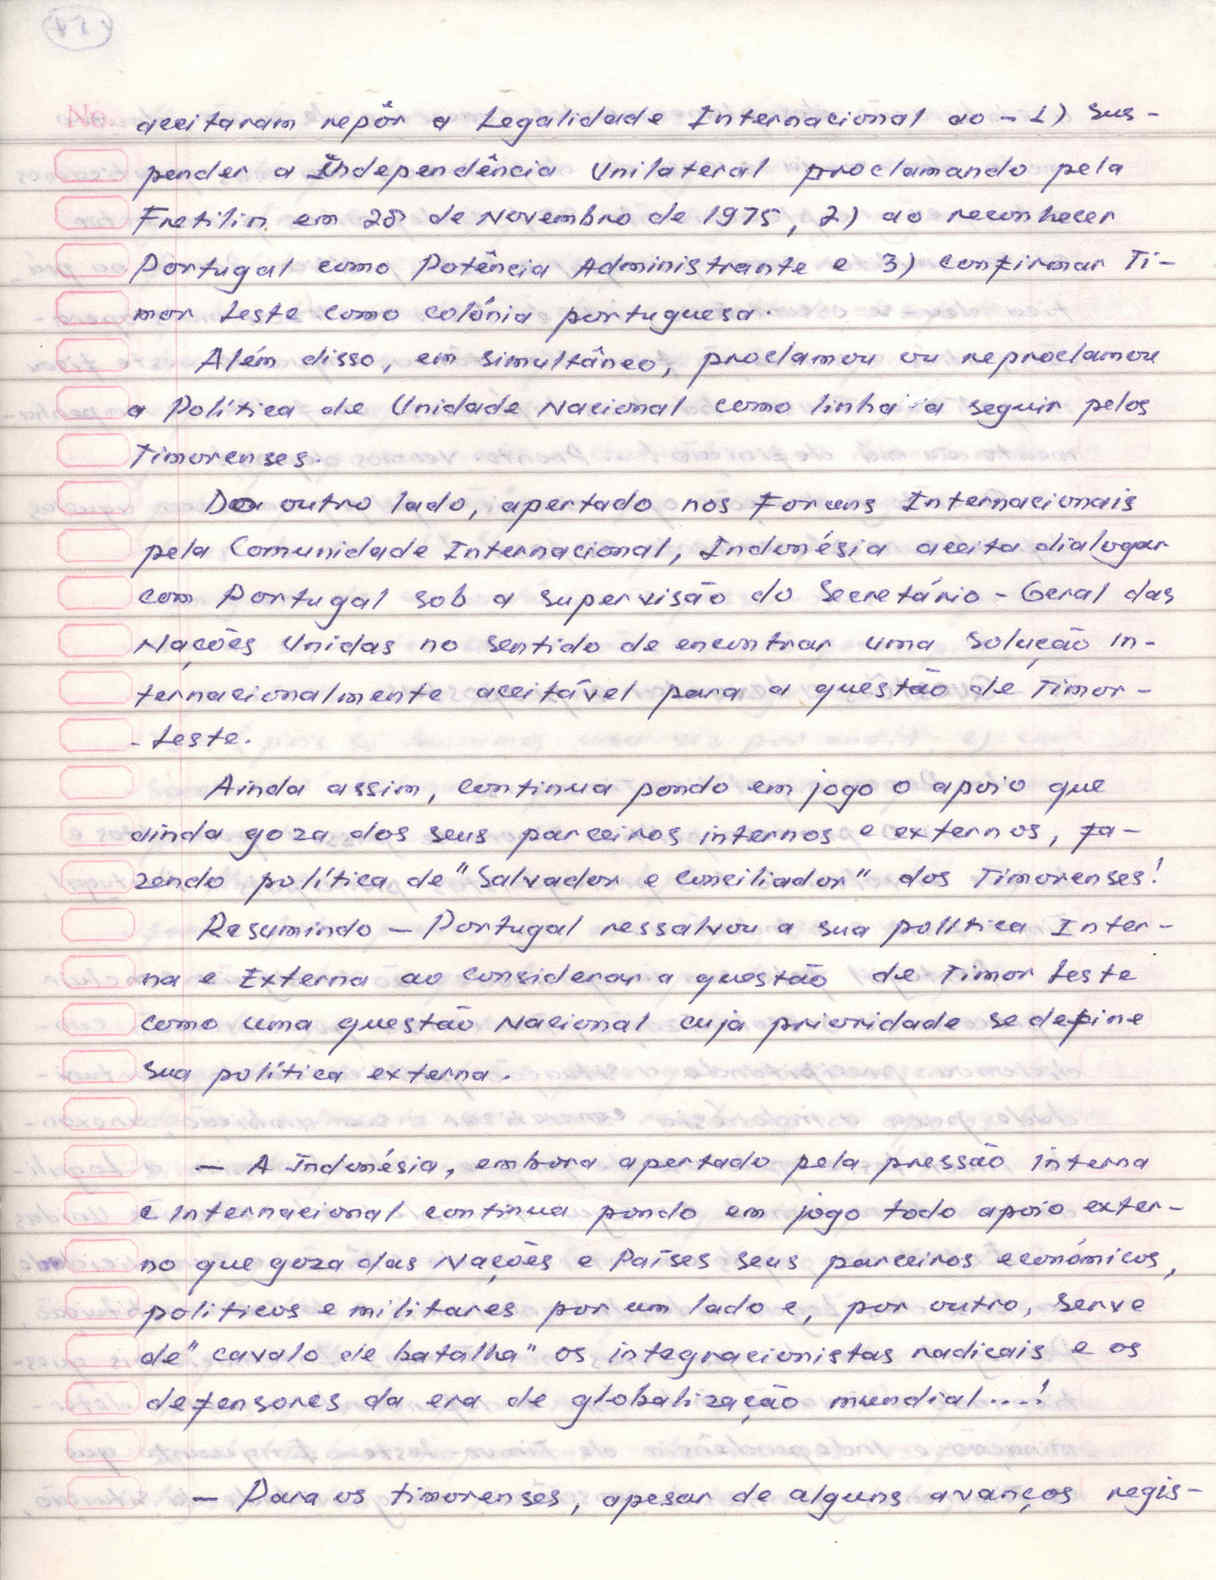 aceitaram repôr a Legalidade Internacional ao - 1) Sus-
pender a Independência Unilateral proclamando pela
Fretilin em 28 de Novembro de 1975, 2) ao reconhecer
Portugal como Potência Administrante e 3) confirmar Ti-
mor Leste como colónia portuguesa.
Além disso, em simultâneo, proclamou ou reproclamou
a Política de Unidade Nacional como linha a seguir pelos
Timorenses.
Do outro lado, apertado nos Foruns Internacionais
pela Comunidade Internacional, Indonésia aceita dialogar
com Portugal sob a supervisão do Secretário-Geral das
Nações Unidas no sentido de encontrar uma Solução in-
ternacionalmente aceitável para a questão de Timor-
-Leste.
Ainda assim, continua pondo em jogo o apoio que
ainda goza dos seus parceiros internos e externos, fa-
zendo política de "Salvador e Conciliador" dos Timorenses!
Resumindo - Portugal ressalvou a sua política Inter-
na e Externa ao considerar a questão de Timor Leste
como uma questão Nacional cuja prioridade se define
sua política externa.
- A Indonésia, embora apertado pela pressão interna
e internacional continua pondo em jogo todo apoio exter-
no que goza das Nações e Países seus parceiros económicos,
politicos e militares por um lado e, por outro, serve
de "cavalo de batalha" os integracionistas radicais e os
defensores da era de globalização mundial...!
- Para os timorenses, apesar de alguns avanços regis-